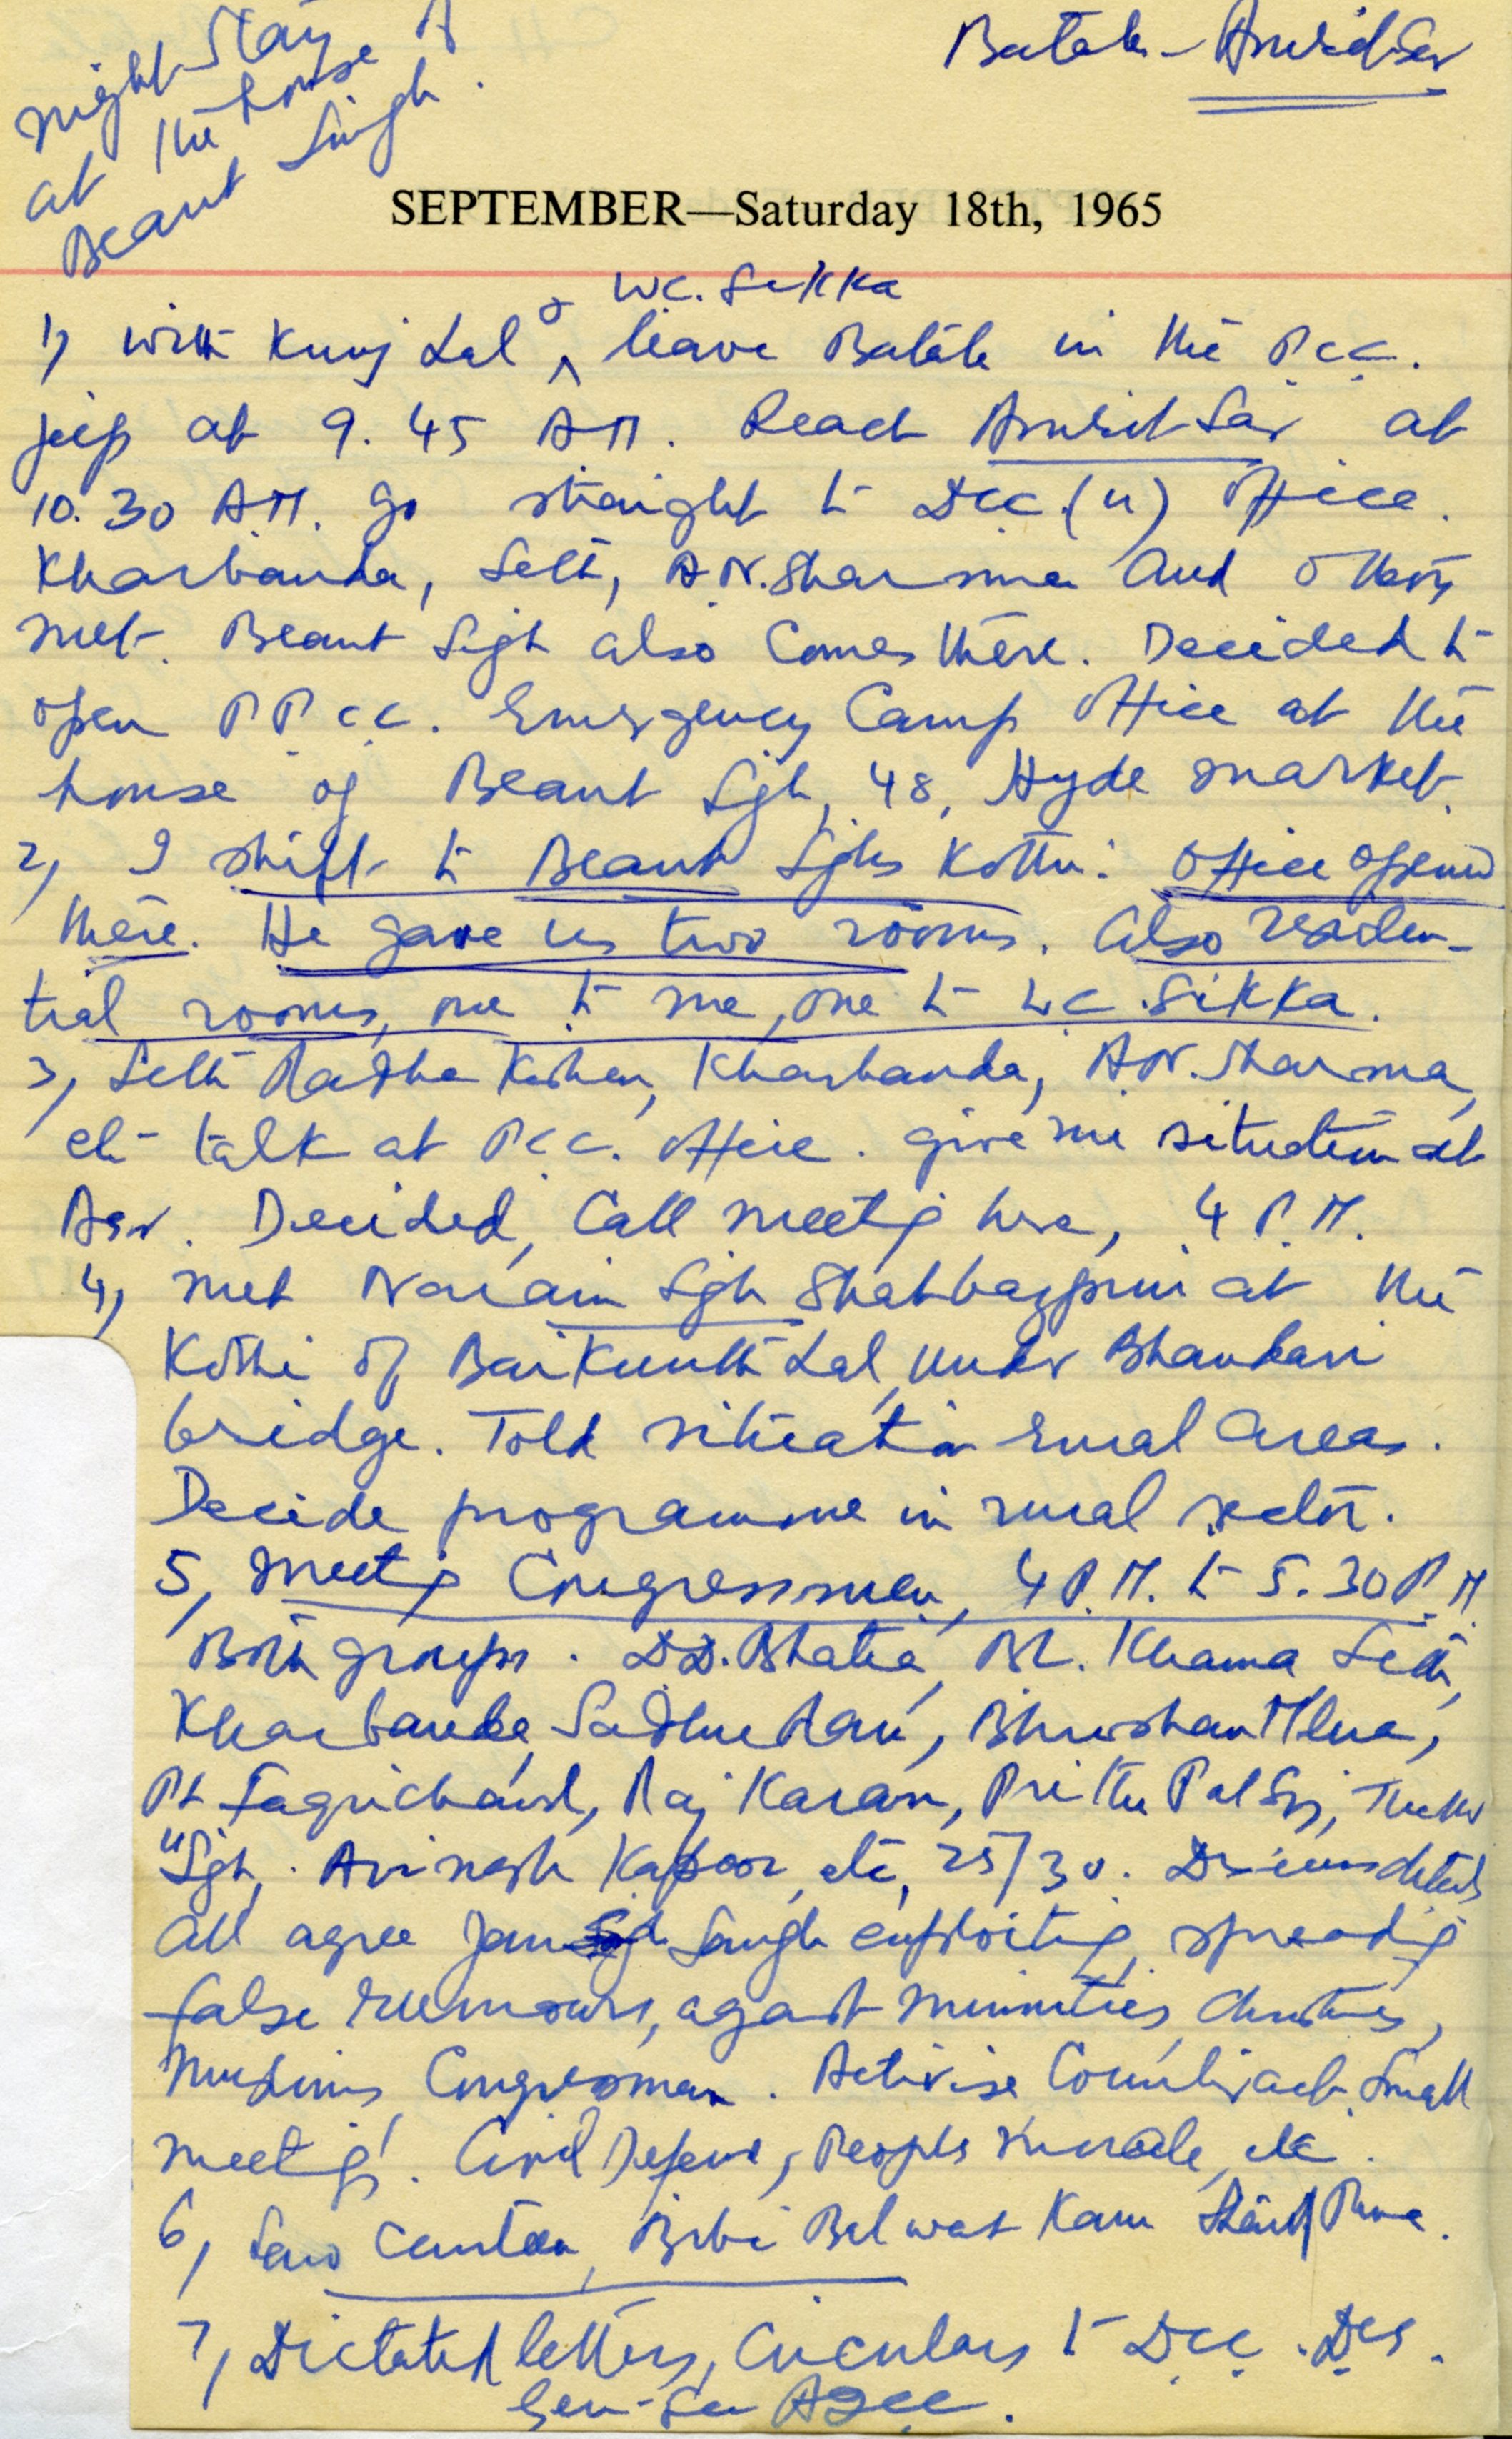 Night Stay
at the house of
Beant Singh.
Batala - Amritsar
SEPTEMBER—Saturday 18th, 1965
& W.C. Sikka
1, With Kunj Lal leave Batala in the P.C.C.
jeep at 9.45 A.M. Reach Amritsar at
10.30 A.M. go straight to D.C.C. (U) Office.
Kharbanda, Seth, A.N. Sharma and others
met. Beant Sgh also comes there. Decided to
open P.P.C.C. Emergency Camp Office at the
house of Beant Sgh, 48, Hyde Market.
2, I shift to Beant Sghs Kothi. Office opened
there. He gave us two rooms. Also residen-
tial rooms, one to me, one to W.C. Sikka.
3, Seth Radha Kishen, Kharbanda, A.N. Sharma,
etc talk at P.C.C. Office. give me situation at
Asr. Decided, Call meetg here, 4 P.M.
4, Met Narain Sgh Shahbazpuri at the
Kothi of Baikunth Lal, under Bhandari
bridge. Told situation rural areas.
Decide programme in rural sector.
5, Meetg Congressmen, 4 P.M. to 5.30 P.M
Both groups. D.D. Bhatia, Khanna Seth,
Kharbanda, Sadhu Ram, Bhushan
Pt Faqirchand, Raj Karan, Prithi Pal Sg,
Sgh, Avinash Kapoor, etc, 25/30. Discuss details
All agree Jan Sangh exploiting, spreadig
false rumours, against minorities, Christians,
Muslims, Congressmen. Activise Counteract. Small
meetgs. Civil Defence, Peoples morale, etc.
6, Saw Canteen, Bibi Balwant Kaur
7, Dictated letters, Circulars to DCC. DCs.
Gen-Sec AICC.